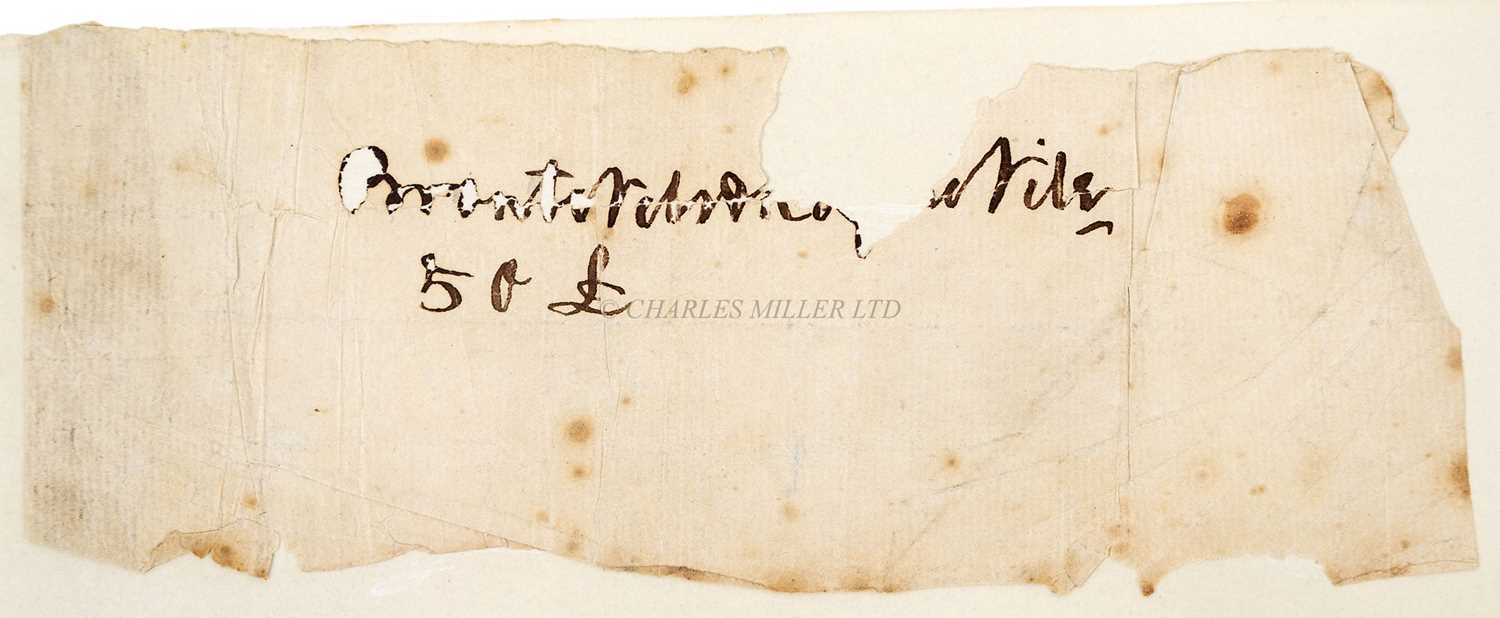 Bronte Nelson of  e Nile
50 £
© CHARLES MILLER LTD